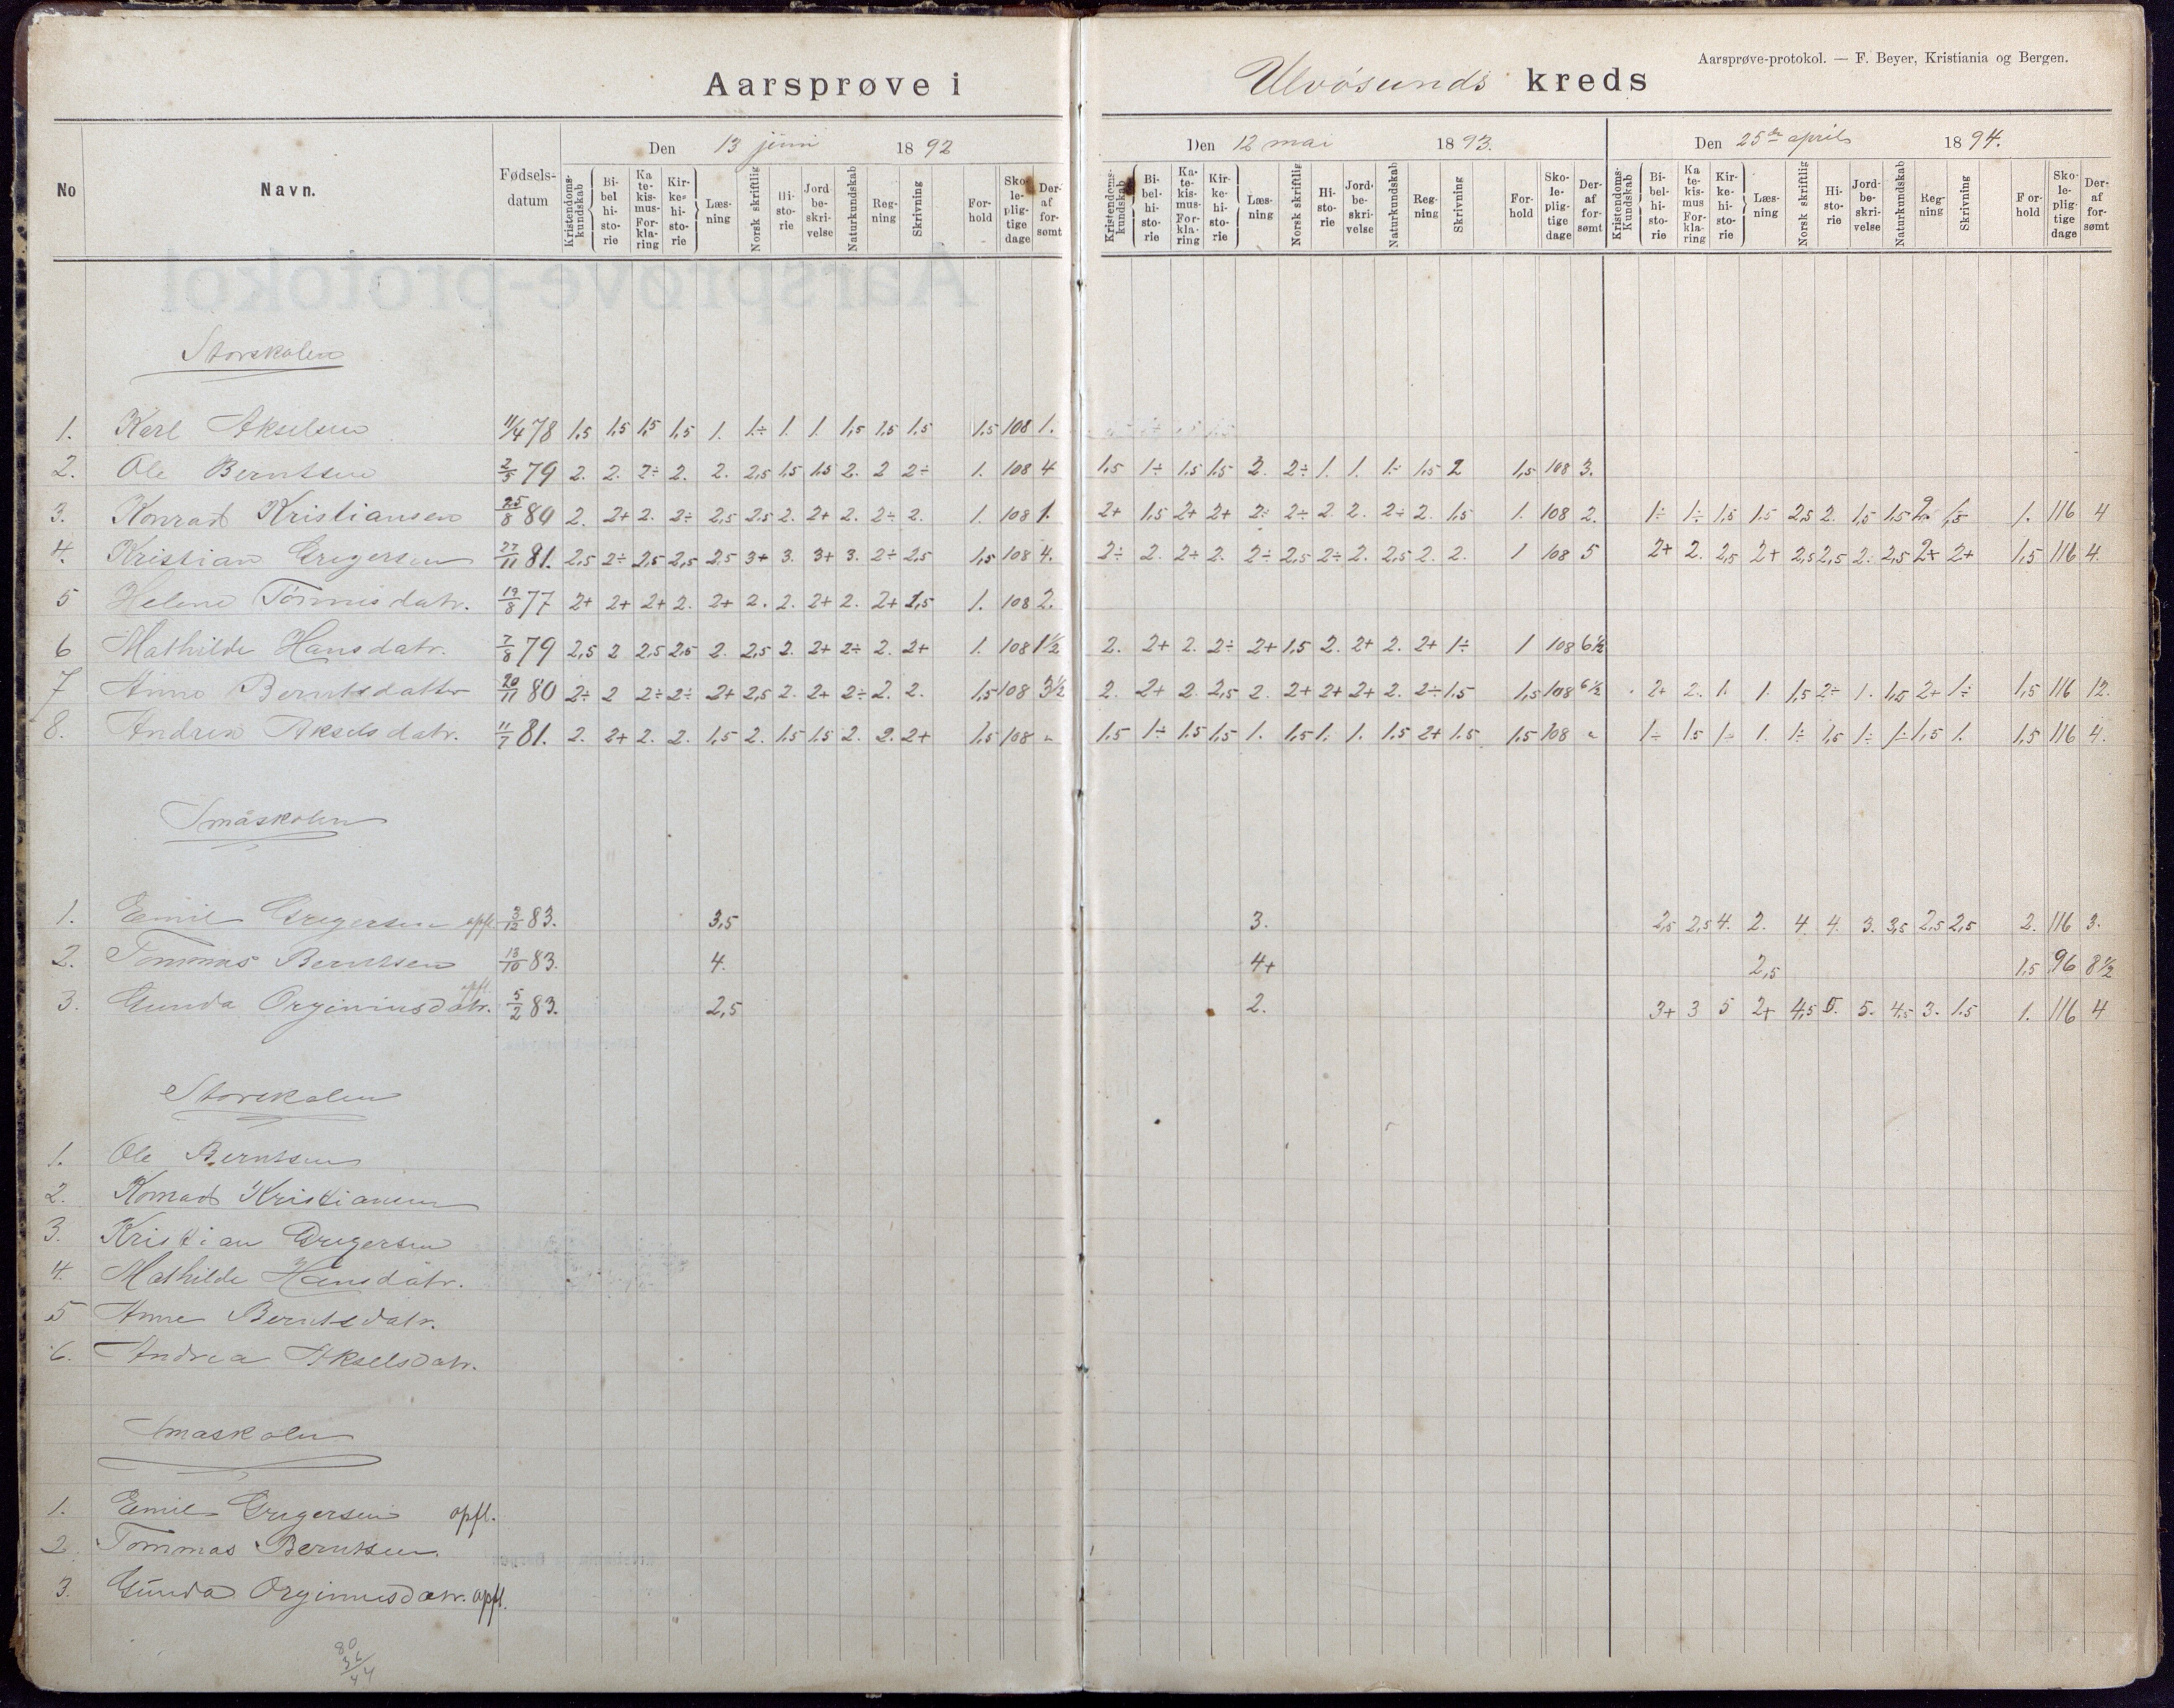 Aarsprøve-protokol. — F. Beyer, Kristiania og Bergen.
Aarsprøve i Ulvösunds kreds
Den 13 juni 1892 Den 12 mai 1893. Den 25de april 1894.
No Navn. Fødsels-datum Kristendoms-kundskab Bi-bel hi-sto-rie Ka te-kis-mus-For-kla-ring Kir-ke-hi-sto-rie Læs-ning Norsk skriftlig Hi-sto-rie Jord-be-skri-velse Naturkundskab Reg-ning Skrivning For-hold Sko-le-plig-tige dage Der-af for-sømt Kristendoms-kundskab Bi-bel-hi-sto-rie Ka-te-kis-mus-For-kla-ring Kir-ke-hi-sto-rie Læs-ning Norsk skriftlig Hi-sto-rie Jord-be-skri-velse Naturkundskab Reg-ning Skrivning For-hold Sko-le-plig-tige dage Der-af for-sømt Kristendoms-Kundskab Bi-bel-hi-sto-rie Ka te-kis-mus For-kla-ring Kir-ke-hi-sto-rie Læs-ning Norsk skriftlig Hi-sto-rie Jord-be-skri-velse Naturkundskab Reg-ning Skrivning For-hold Sko-le-plig-tige dage Der-af for-sømt
Storskolen
1. Karl Akselsen 11/4 78 1,5 1,5 1,5 1,5 1. 1.÷ 1. 1. 1,5 1,5 1.5 1.5 108 1.
2. Ole Berntsen 2/5 79 2. 2. 2÷ 2. 2. 2,5 1.5 1.5 2. 2 2÷ 1. 108 4 1,5 1÷ 1.5 1.5 2. 2÷ 1. 1. 1÷ 1.5 2 1,5 108 3.
3. Konrad Kristiansen 25/8 80 2. 2+ 2. 2÷ 2,5 2.5 2. 2+ 2. 2÷ 2. 1. 108 1. 2+ 1.5 2+ 2+ 2÷ 2÷ 2 2. 2÷ 2. 1.5 1. 108 2. 1÷ 1÷ 1.5 1.5 2,5 2. 1,5 1.5 2 1,5 1. 116 4
4. Kristian Gregersen 27/11 81. 2,5 2÷ 2,5 2,5 2.5 3+ 3. 3+ 3. 2÷ 2,5 1,5 108 4. 2÷ 2. 2÷ 2. 2÷ 2,5 2÷ 2. 2,5 2. 2. 1 108 5 2+ 2. 2,5 2+ 2,5 2,5 2. 2,5 2+ 2+ 1,5 116 4.
5 Helene Tönnisdatr. 19/8 77 2+ 2+ 2+ 2. 2+ 2. 2. 2+ 2. 2+ 1,5 1. 108 2.
6 Mathilde Hansdatr. 7/8 79 2,5 2 2,5 2,5 2. 2,5 2. 2+ 2÷ 2. 2+ 1. 108 1½ 2. 2+ 2. 2÷ 2+ 1,5 2. 2+ 2. 2+ 1÷ 1 108 6½
7 Anne Berntsdatter 20/11 80 2÷ 2 2÷ 2÷ 2+ 2,5 2. 2+ 2÷ 2. 2. 1,5 108 3½ 2. 2+ 2. 2,5 2. 2+ 2+ 2+ 2. 2÷ 1.5 1,5 108 6½ 2+ 2. 1. 1. 1,5 2÷ 1. 1,5 2+ 1÷ 1,5 116 12.
8. Andrea Akselsdatr. 11/7 81. 2. 2+ 2. 2. 1,5 2. 1.5 1.5 2. 2. 2+ 1,5 108 1.5 1÷ 1.5 1.5 1. 1,5 1. 1. 1.5 2+ 1.5. 1.5 108 1÷ 1.5 1÷ 1. 1÷ 1,5 1÷ 1÷ 1,5 1. 1,5 116 4.
Småskolen
1. Emil Gregersen opfl. 3/12 83. 3,5 3. 2,5 2,5 4. 2. 4. 4. 3. 3,5 2,5 2,5 2. 116 3.
2. Tommas Berntsen 13/10 83. 4. 4+ 2,5 1.5 96 8½
3. Gunda Orginiusdatr. opfl 5/2 83. 2,5 2. 3+ 3 5 2+ 4,5 5. 5. 4.5 3. 1.5 1. 116 4
Storskolen
1. Ole Berntsen
2. Konrad Kristiansen
3. Kristian Gregersen
4. Mathilde Hansdatr.
5 Anne Berntsdatr.
6. Andrea Akselsdatr.
Småskolen
1. Emil Gregersen opfl.
2. Tommas Berntsen
3. Gunda Orginiusdatr. opfl.
80
36
44